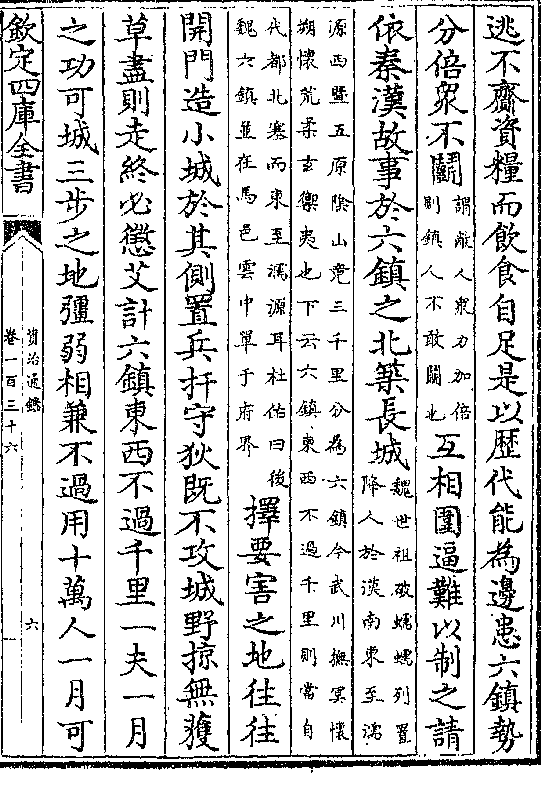 逃不齎資糧而飲食自足是以歷代能為邊患六鎮勢
分倍衆不鬭謂敵人衆力加倍則鎮人不敢鬭也互相圍逼難以制之請
依秦漢故事於六鎮之北築長城魏世祖破蠕蠕列置降人於漠南東至濡
源西暨五原陰山竟三千里分為六鎮今武川撫冥懷
朔懷荒柔玄禦夷也下云六鎮東西不過千里則當自
代都北塞而東至濡源耳杜佑曰後魏六鎮並在馬邑雲中單于府界擇要害之地往往
開門造小城於其側置兵扞守狄既不攻城野掠無獲
草盡則走終必懲艾計六鎮東西不過千里一夫一月
之功可城三步之地彊弱相兼不過用十萬人一月可
欽定四庫全書
資治通鑑
卷一百三十六
六